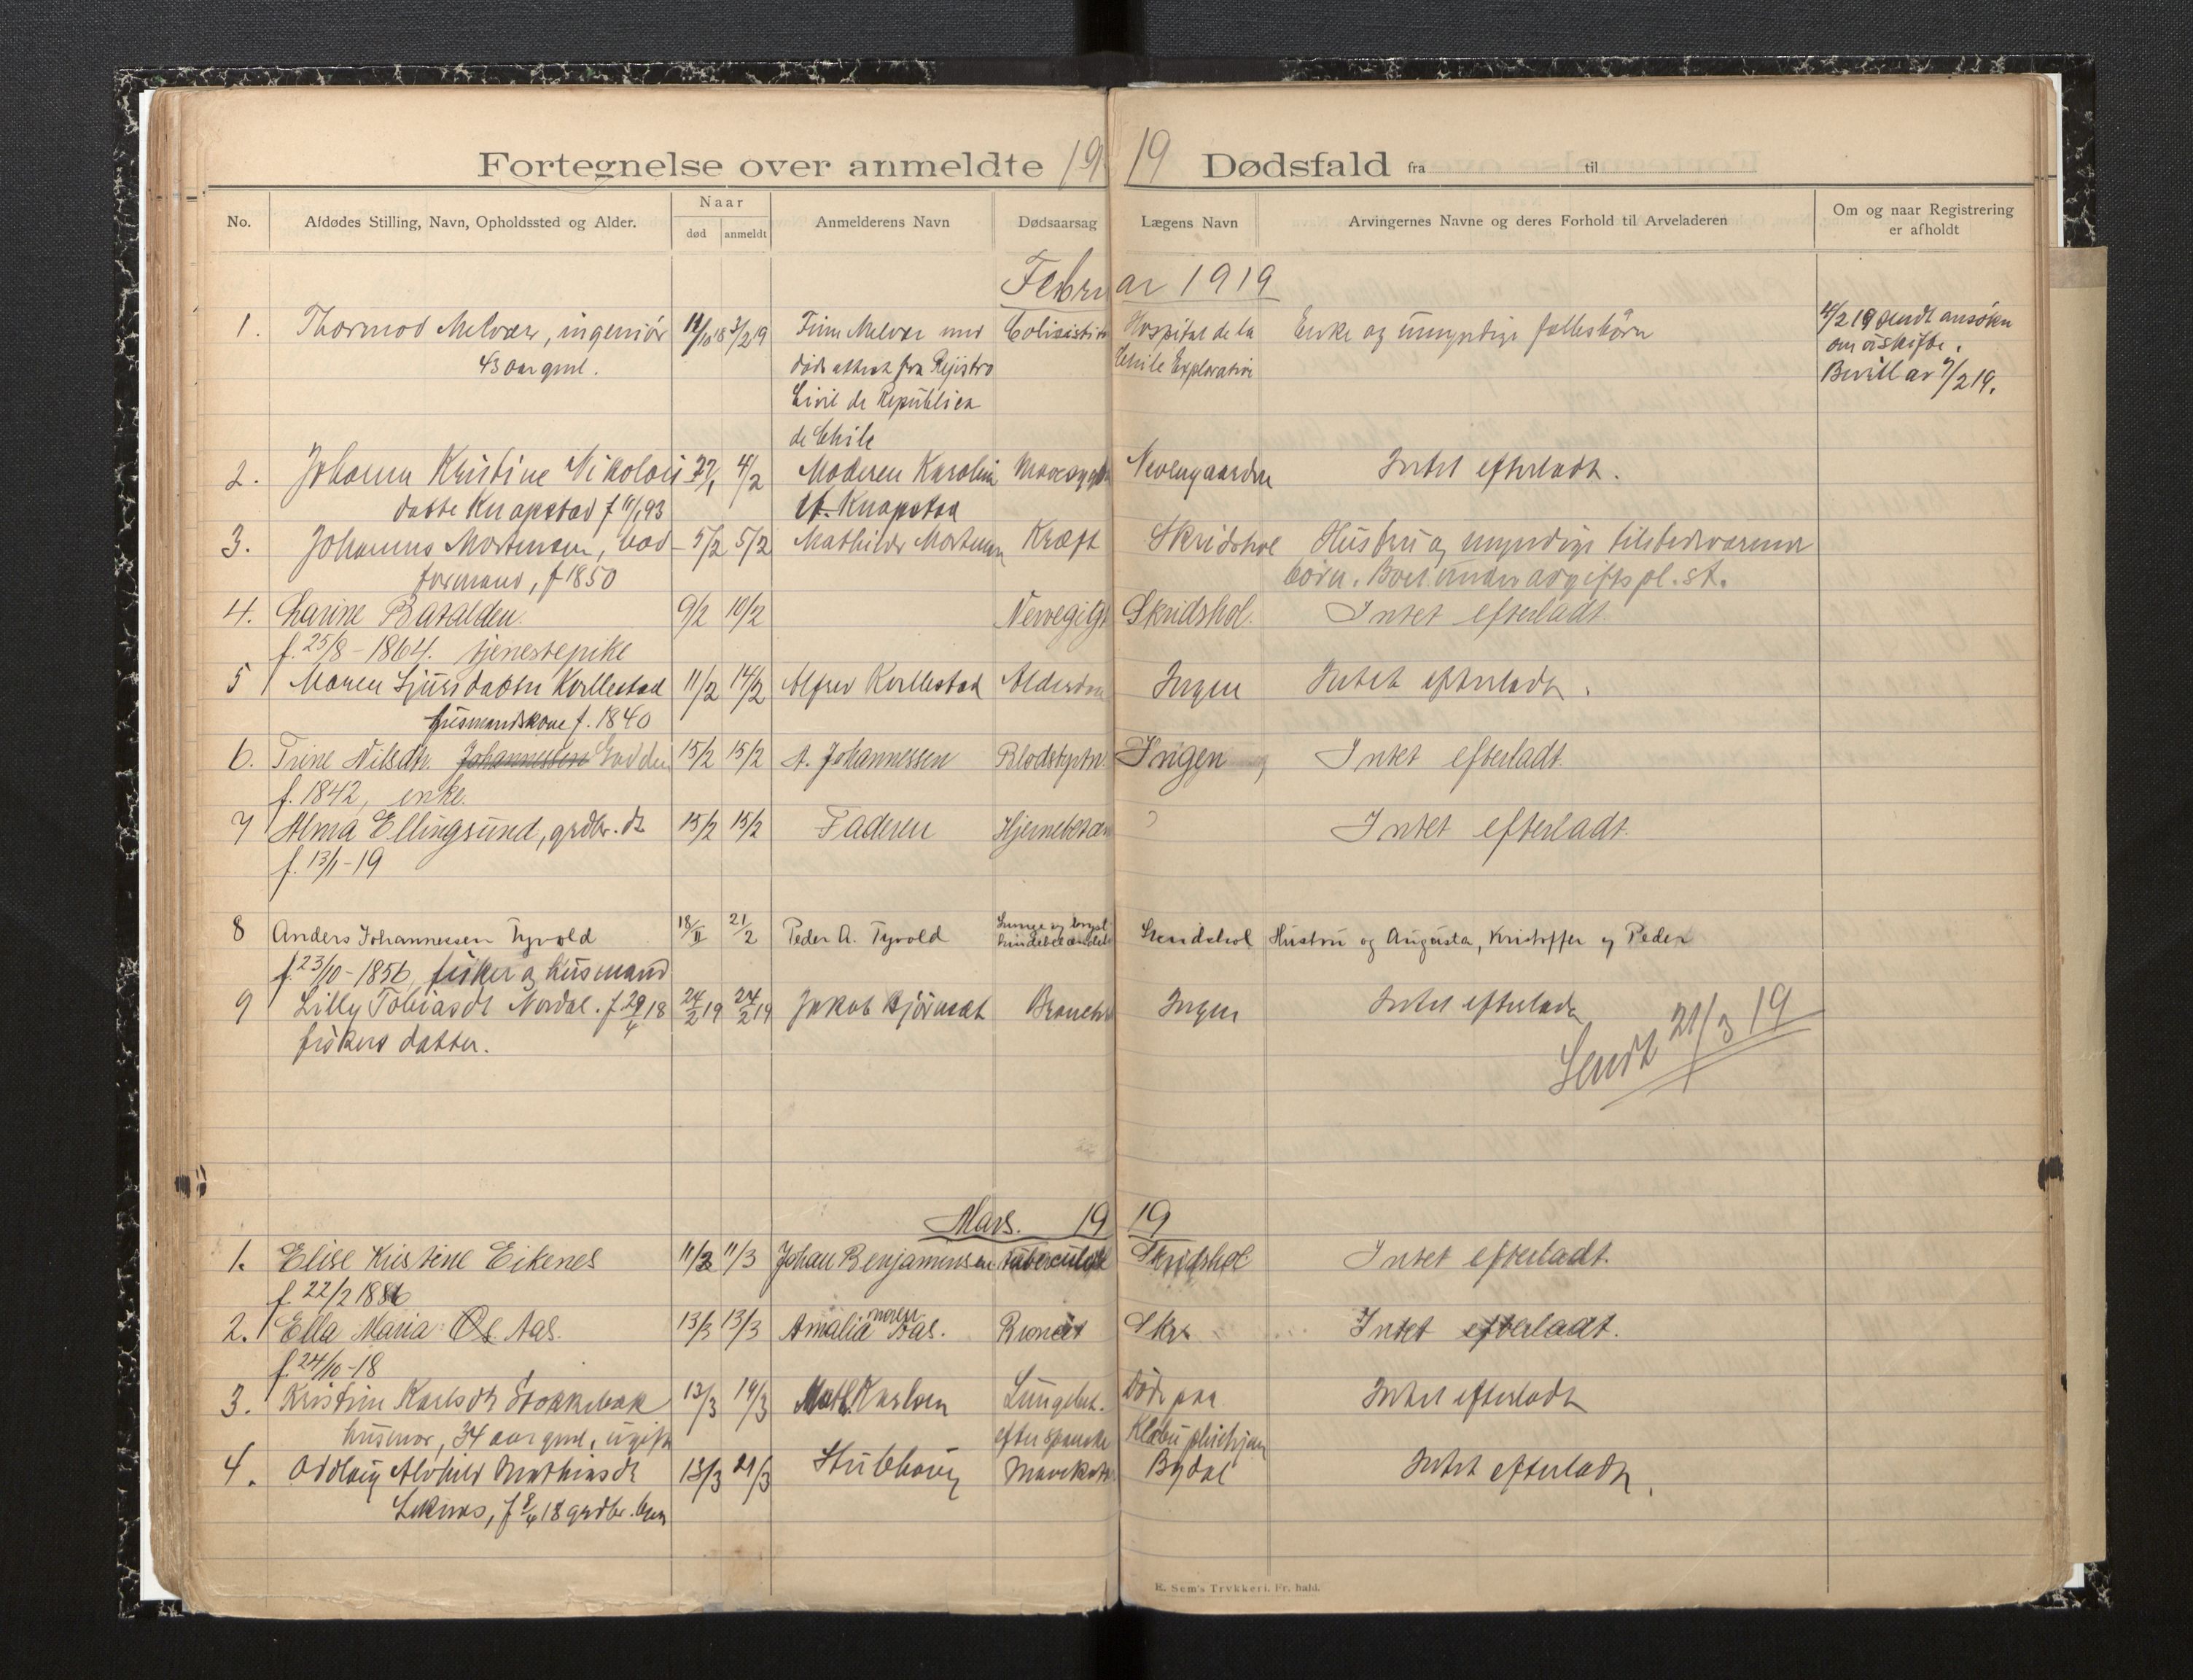 Fortegnelse over anmeldte 19 19 Dødsfald fra til
No. Afdødes Stilling, Navn, Opholdssted og Alder. Naar død anmeldt Anmelderens Navn Dødsaarsag Lægens Navn Arvingernes Navne og deres Forhold til Arveladeren Om og naar Registrering er afholdt
Februar 1919
1. Thormod Melvær, ingeniør 3/2 19 Finn Melvær med Hospital de la Enke og umyndige fellesbörn 4/2 19 sendt ansökn
43 aar gml. dödsattest fra Rejistro Chile Exploration om uskifte.
Civil de Republica Bevill av 7/2 19.
de Chile
2. Johanna Kristine Nikolai 27/1 4/2 Moderen Karolin Nevengaarden Intet efterladt.
datter Knapstad f 11/1 93 Knapstad
3. Johannes Mortensen, 5/2 5/2 Mathilde Mortensen Kræft Skridshol Hustru og myndige tilstedeværende
formand, f 1850 börn. Boet under avgiftspl. st.
4. Larine Batalden. 9/2 10/2 Nervegigt Skridshol. Intet efterladt
f. 25/8 - 1864. tjenestepike
5 Maren Sjursdatter Kvellestad 11/2 14/2 Alfred Kvellestad Alderdom Ingen Intet efterladt.
husmandskone f. 1840
6. Trine Nilsdtr. Johannessen 15/2 15/2 A. Johannessen Blodstyrtn. Ingen Intet efterladt.
f. 1842, enke.
7 Alma Ellingsund, grdbr. dt 15/2 15/2 Faderen Hjernebetæn ? Intet efterladt.
f. 13/1 - 19
8 Anders Johannessen Tyvold 18/II 21/2 Peder A. Tyvold Lunge og Skridshol Hustru og Augusta, Kristoffer og Peder
f. 23/10 - 1856, fisker og husmand
9 Lilly Tobiasdt Nordal. f 29/4 18 24/2 19 24/2 19 Jakob Ingen Intet efterladt
fiskers datter.
Sendt 21/3 19
Mars. 19 19
1. Elise Kristine Eikenes 11/3 11/3 Johan Benjaminsen tuberculose Skridshol Intet efterladt.
f. 22/2 1886
2. Ella Maria Aas. 13/3 13/3 Amalia Aas. Broncit Skr. Intet efterladt.
f. 24/10 - 18
3. Kristine Karlsdt Stokkebak 13/3 14/3 Karlsen Lungebet. Döde paa Intet efterladt
husmor, 34 aar gml, ugift efter spanske Klæbu pleiehjem
4. Oddlaug Alvhild Mathiasdt 13/3 21/3 Stubhaug Bydal Intet efterladt.
Leknes, f 8/4 18 grdbr. barn
E. Sem's Trykkeri. Fr. hald.